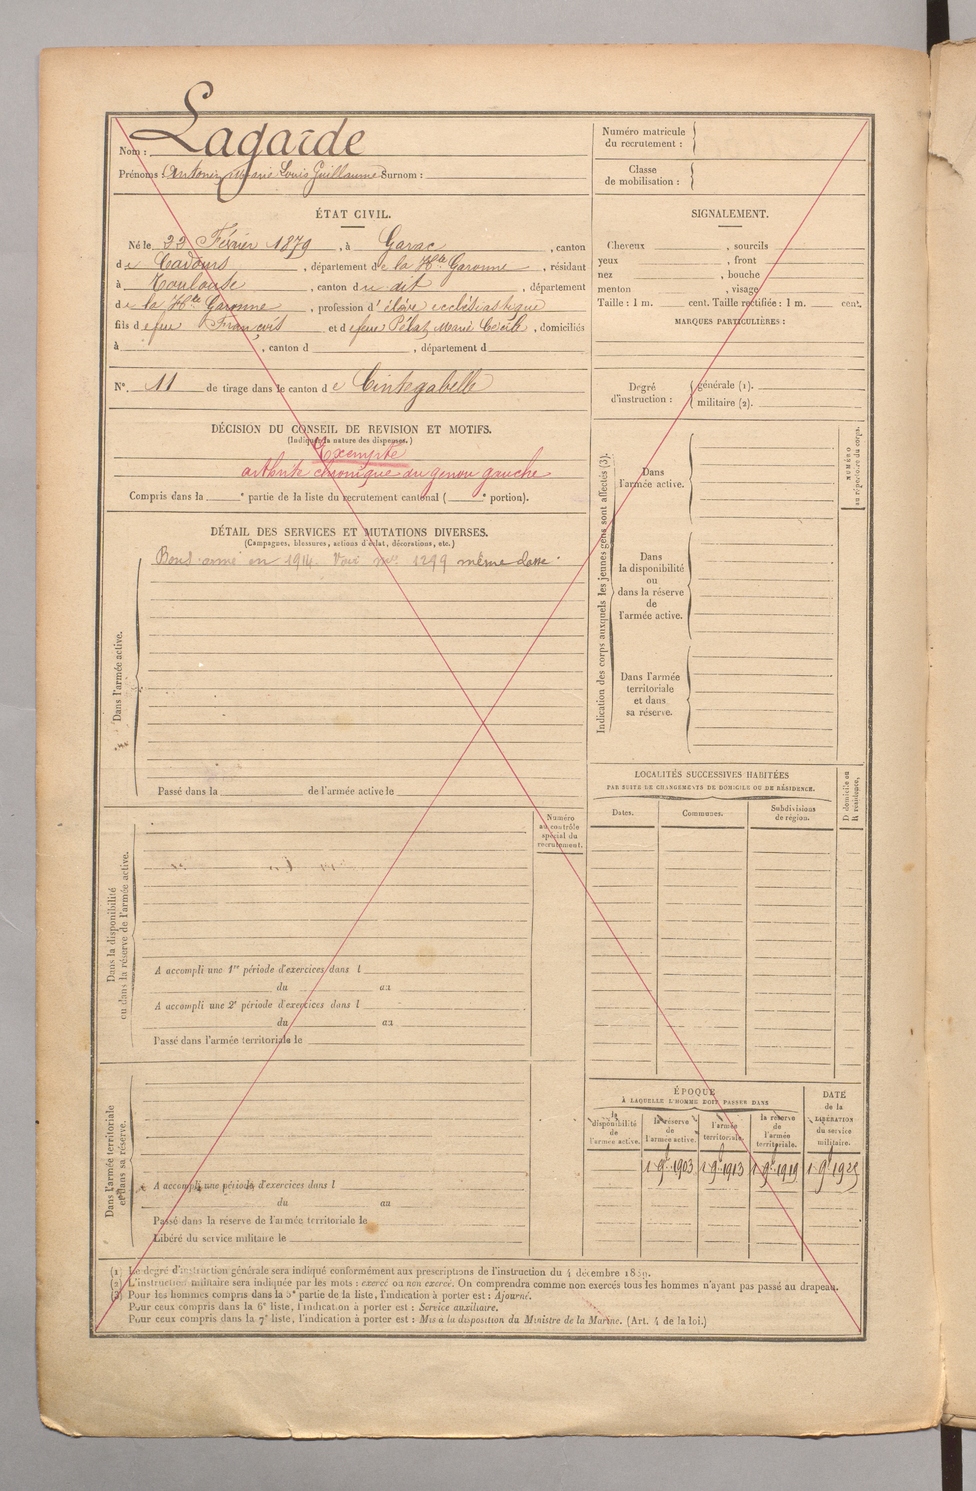 Nom : Lagarde
Prénoms : Antonin Marie Louis Guillaume Surnom :
Numéro matricule
du recrutement :
Classe
de mobilisation :
ÉTAT CIVIL.
Né le 22 Février 1879, à Garac, canton
de Cadours, département de la Hte Garonne, résidant
à Toulouse, canton du dit, département
de la Hte Garonne, profession d'élève ecclésiastique
fils de feu François et de feue Pélat Marie Cécile, domiciliés
à , canton d , département d
No. 11 de tirage dans le canton de Cintegabelle
DÉCISION DU CONSEIL DE REVISION ET MOTIFS.
(Indiquer la nature des dispenses.)
Exempté
arthrite chronique du genou gauche
Compris dans la e partie de la liste du recrutement cantonal ( e portion).
DÉTAIL DES SERVICES ET MUTATIONS DIVERSES.
(Campagnes, blessures, actions d'éclat, décorations, etc.)
Bons armé en 1914. Voir no. 1299 même classe
Dans l'armée active.
Passé dans la de l'armée active le
Numéro
au contrôle
spécial du
recrutement.
Dans la disponibilité
ou dans la réserve de l'armée active.
A accompli une 1re période d'exercices dans l
du au
A accompli une 2e période d'exercices dans l
du au
Passé dans l'armée territoriale le
Dans l'armée territoriale
et dans sa réserve.
A accompli une période d'exercices dans l
du au
Passé dans la réserve de l'armée territoriale le
Libéré du service militaire le
SIGNALEMENT.
Cheveux , sourcils
yeux , front
nez , bouche
menton , visage
Taille : 1 m. cent. Taille rectifiée : 1 m. cent.
MARQUES PARTICULIÈRES :
Degré
d'instruction :
générale (1).
militaire (2).
Indication des corps auxquels les jeunes gens sont affectés (3).
Dans
l'armée active.
Dans
la disponibilité
ou
dans la réserve
de
l'armée active.
Dans l'armée
territoriale
et dans
sa réserve.
NUMÉRO
au répertoire du corps.
LOCALITÉS SUCCESSIVES HABITÉES
PAR SUITE DE CHANGEMENTS DE DOMICILE OU DE RÉSIDENCE.
Dates. Communes. Subdivisions
de région.
D domicile ou
R résidence.
ÉPOQUE
À LAQUELLE L'HOMME DOIT PASSER DANS
la
disponibilité
de
l'armée active.
la réserve
de
l'armée active.
l'armée
territoriale.
la réserve
de
l'armée
territoriale.
DATE
de la
LIBÉRATION
du service
militaire.
1 9bre 1903 1 9bre 1913 1 9bre 1919 1 9bre 1925
(1) Le degré d'instruction générale sera indiqué conformément aux prescriptions de l'instruction du 4 décembre 1889.
(2) L'instruction militaire sera indiquée par les mots : exercé ou non exercé. On comprendra comme non exercés tous les hommes n'ayant pas passé au drapeau.
(3) Pour les hommes compris dans la 5e partie de la liste, l'indication à porter est : Ajourné.
Pour ceux compris dans la 6e liste, l'indication à porter est : Service auxiliaire.
Pour ceux compris dans la 7e liste, l'indication à porter est : Mis à la disposition du Ministre de la Marine. (Art. 4 de la loi.)